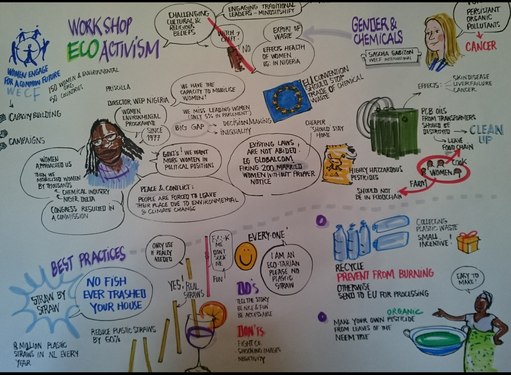 WORKSHOP
ECO ACTIVISM
WOMEN ENGAGE
FOR A COMMON FUTURE
WECF
CAPACITY BUILDING
CAMPAIGNS
WOMEN
APPROACHED US
THEN WE
MOBILISED WOMEN
BY THOUSANDS
CHEMICAL INDUSTRY
NIGER DELTA
CONGRESS RESULTED IN
A COMMISSION
PRISCILLA
DIRECTOR, WEP NIGERIA
WOMEN
ENVIRONMENTAL
PROGRAMME
SINCE
1997
CHALLENGING
CULTURAL &
RELIGIOUS
BELIEFS
ENGAGING TRADITIONAL
LEADERS - MINDSHIFT
NO
EXPORT OF
WASTE
EFFECTS HEALTH OF
WOMEN
IN NIGERIA
WE HAVE THE
CAPACITY TO MOBILISE
WOMEN!
WE MISS LEADING WOMEN
BIG GAP
DECISIONMAKING
INEQUALITY
GOVT'S: WE WANT
MORE WOMEN
IN POLITICAL
POSITIONS
PEACE & CONFLICT:
PEOPLE ARE FORCED TO LEAVE
THEIR PLACE DUE TO ENVIRONMENTAL
& CLIMATE CHANGE
EU CONVENTION
SHOULD STOP
TRADE OF CHEMICAL
EXISTING LAWS
ARE NOT ABIDED
EG. GLOBALCOM
FIRING 200 MARRIED
WOMEN WITHOUT PROPER
NOTICE
GENDER &
CHEMICALS
SASCHA GABIZON
WECF INTERNATIONAL
PERSISTANT
ORGANIC
POLLUTANTS
CANCER
EFFECTS:
SKIN DISEASE
LIVER CANCER
PCB OILS
FROM TRANSFORMERS
SHOULD BE
CLEAN
UP
LEAVE
FOOD CHAIN
CHEAPER
SHOULD STAY
HOME
HIGHLY HAZARDOUS
PESTICIDES
SHOULD NOT BE
IN FOODCHAIN
COOK
WOMEN
FARM
BEST PRACTICES
STRAW BY
STRAW
NO FISH
EVER TRASHED
YOUR HOUSE
REDUCE PLASTIC STRAWS
BY 60%
8 MILLION PLASTIC
STRAWS IN NL EVERY
YEAR
ONLY USE IF
REALLY
NEEDED
YES, REAL
STRAWS
FUN
EVERY-ONE
I AM AN
ECO-TARIAN
PLEASE NO
PLASTIC
STRAW
DO'S
TELL THE STORY
BE NICE & FUN
BE ACCESSIBLE
DON'TS
FIGHT
SHOCKING IMAGES
NEGATIVITY
COLLECTING
PLASTIC WASTE
SMALL
INCENTIVE!
RECYCLE
PREVENT FROM BURNING
OTHERWISE
SEND TO EU FOR PROCESSING
MAKE YOUR OWN ORGANIC
PESTICIDE
FROM LEAVES OF THE
NEEM TREE
EASY TO
MAKE!